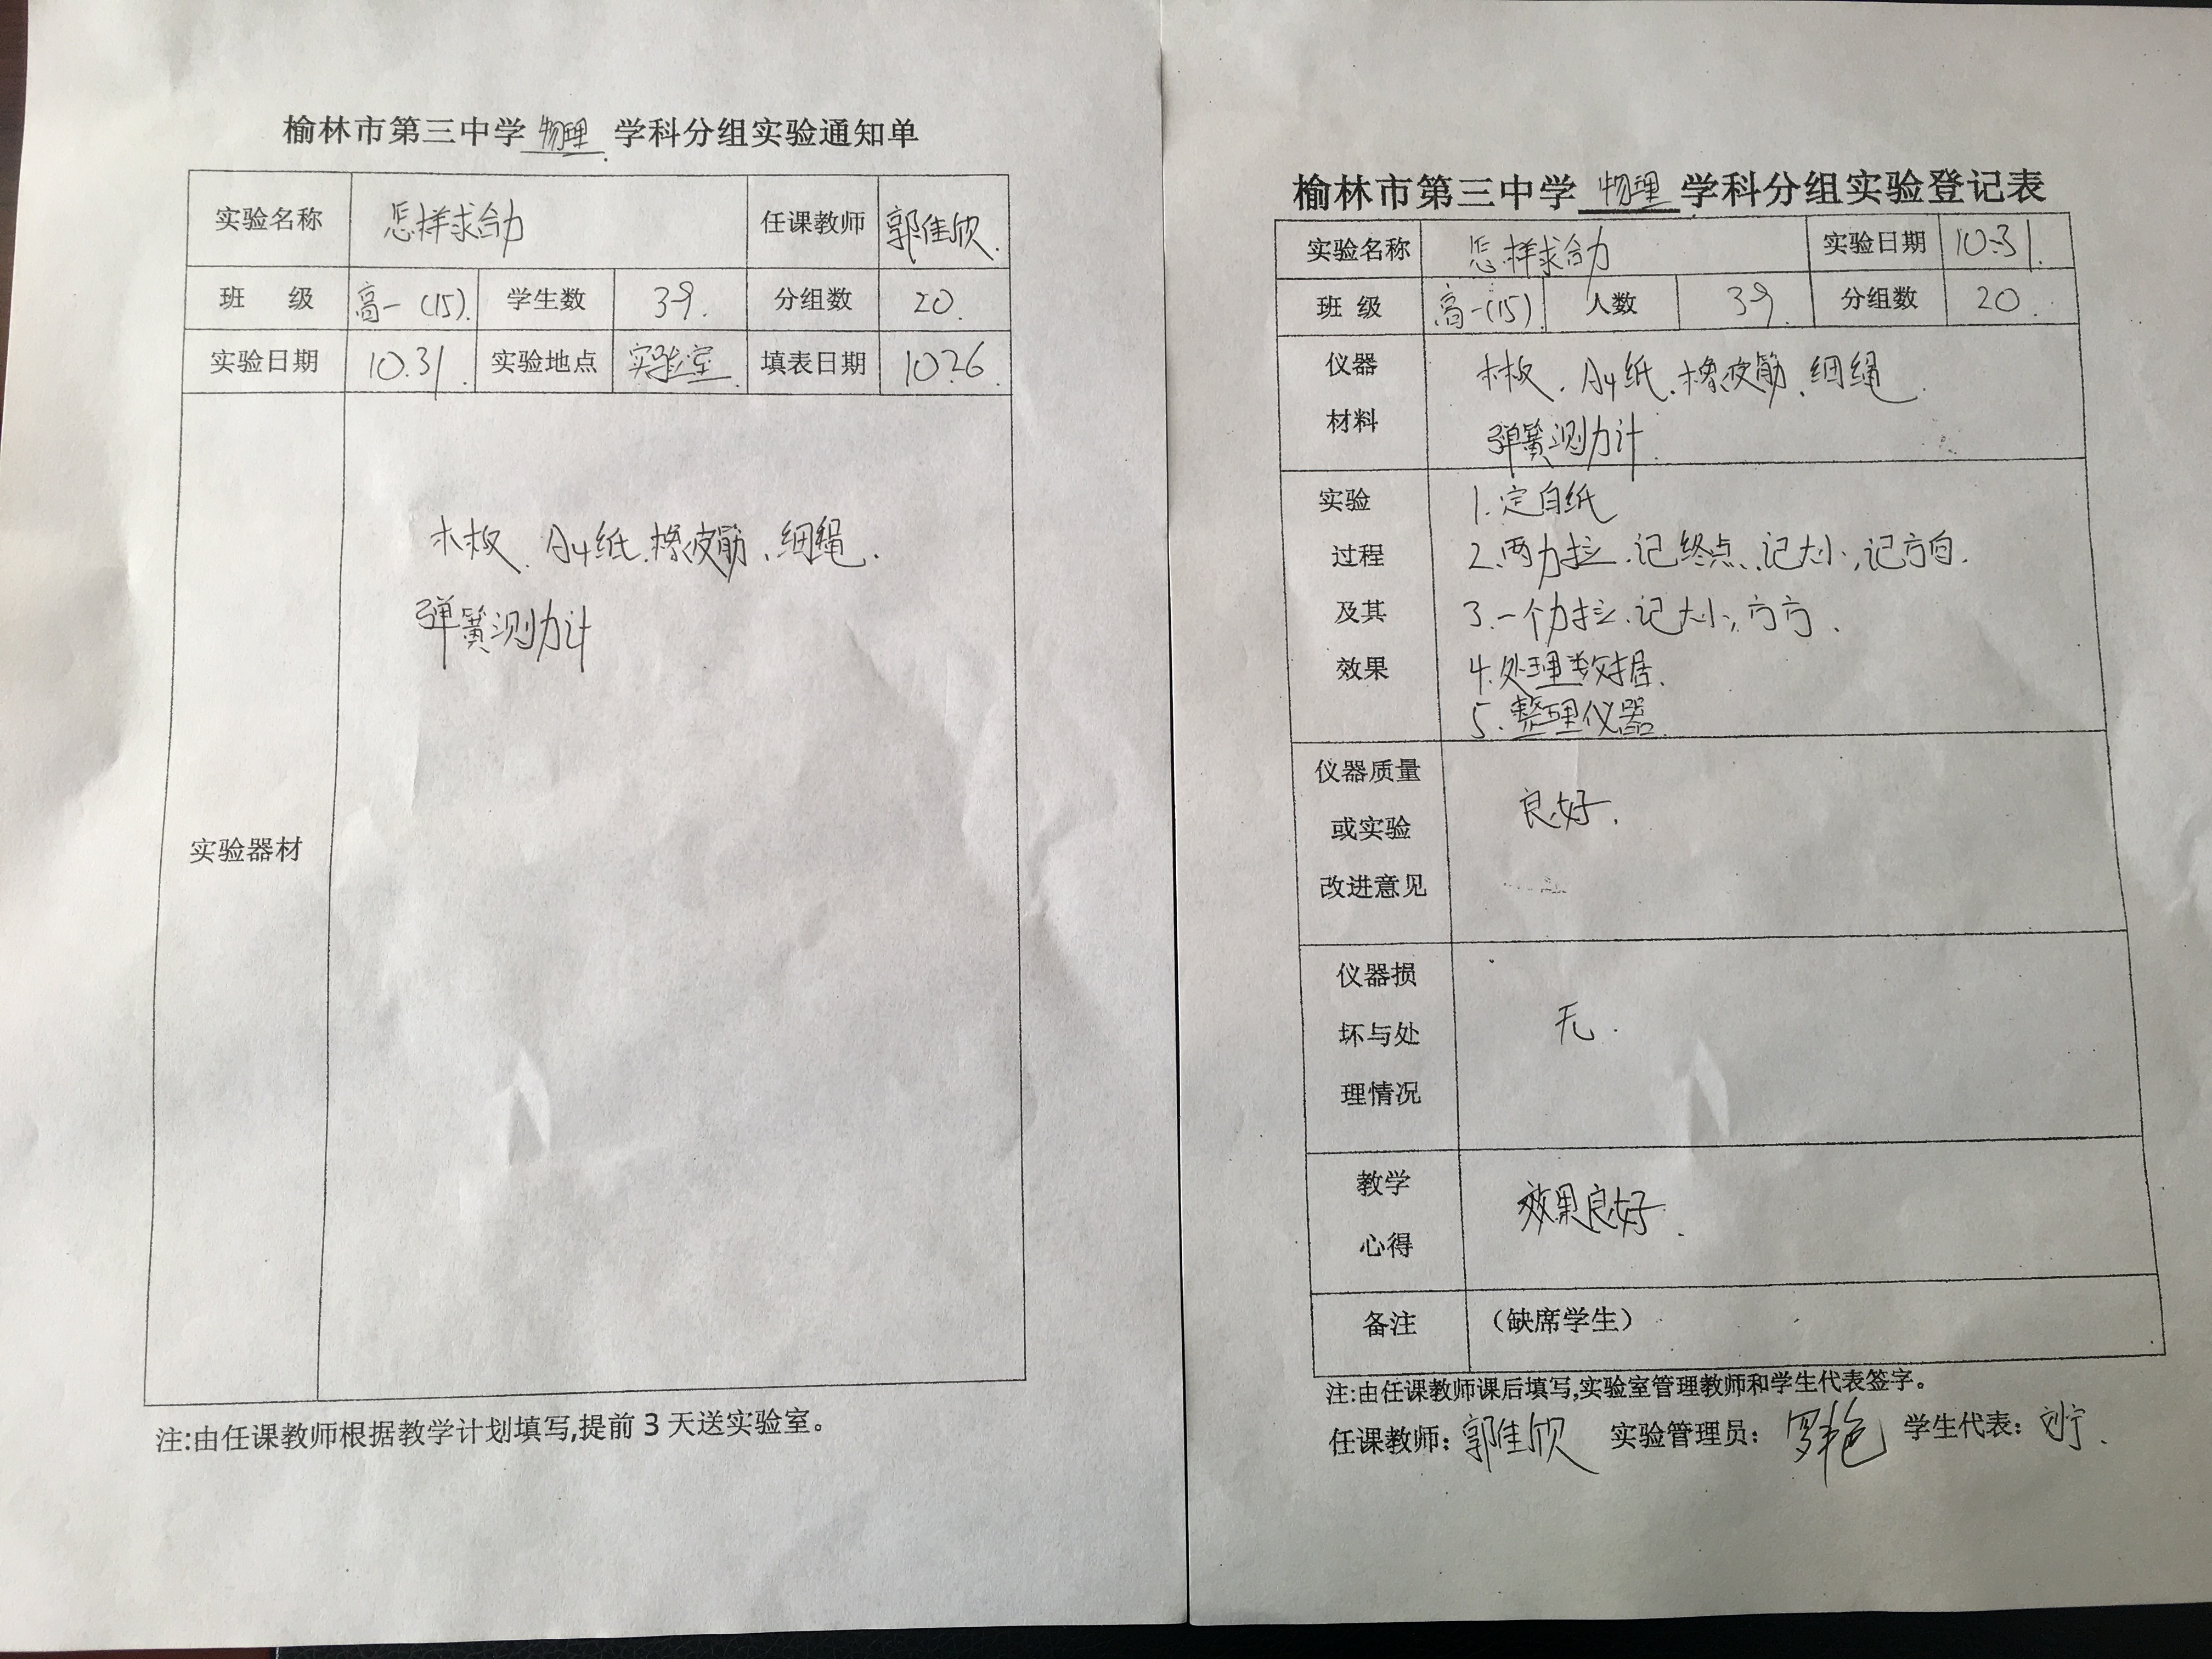 榆林市第三中学 物理 学科分组实验通知单
实验名称 怎样求合力 任课教师 郭佳欣.
班 级 高一(15). 学生数 39. 分组数 20.
实验日期 10.31. 实验地点 实验室. 填表日期 10.26.
实验器材
木板、A4纸、橡皮筋、细绳.
弹簧测力计
注:由任课教师根据教学计划填写,提前 3 天送实验室。
榆林市第三中学 物理 学科分组实验登记表
实验名称 怎样求合力 实验日期 10.31.
班 级 高一(15). 人数 39. 分组数 20.
仪器
材料
木板、A4纸、橡皮筋、细绳.
弹簧测力计.
实验
过程
及其
效果
1.定白纸
2.两力拉.记终点、记大小,记方向.
3.一个力拉.记大小,方方.
4.处理数据.
5.整理仪器.
仪器质量
或实验
改进意见
良好.
仪器损
坏与处
理情况
无.
教学
心得
效果良好.
备注 (缺席学生)
注:由任课教师课后填写,实验室管理教师和学生代表签字。
任课教师: 郭佳欣 实验管理员: 罗艳 学生代表: 刘宁.